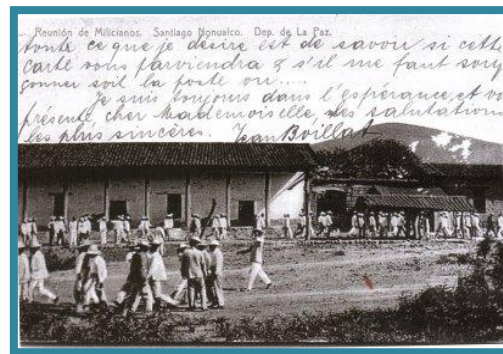 Reunión de Milicianos. Santiago Nonualco. Dep. de La Paz.
toute ce que je desire est de savoir si cette
carte vous parviendra & s'il me faut soup
çonner soit la poste ou....
Je suis toujours dans l'espérance, et vo
présente cher Mademoiselle, mes salutations
les plus sincères. Jean Boillat